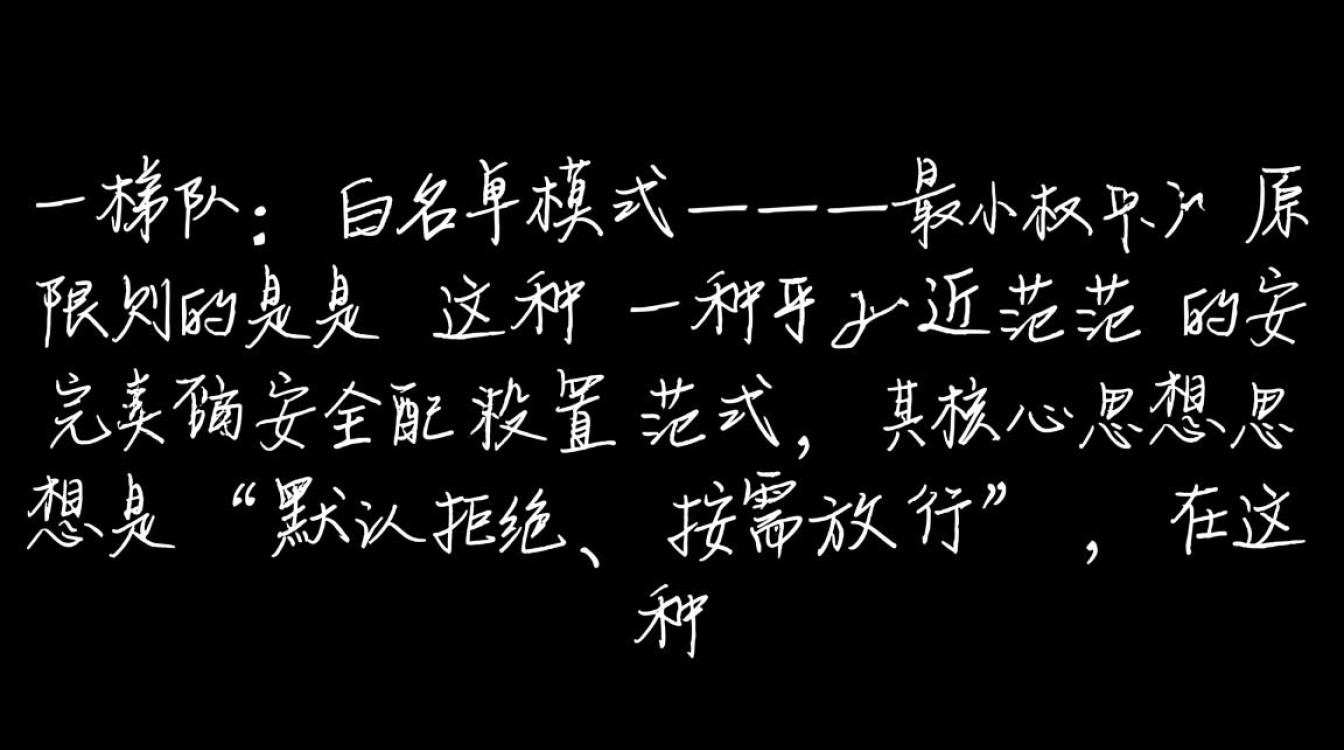 一梯队：白名单模式———最小权 原
限则的是是 这种 一种乎 近范范 的安
完卖确安全配 设置 范式，其核心思想思
想是“默认拒绝、按需放行”，在这
种